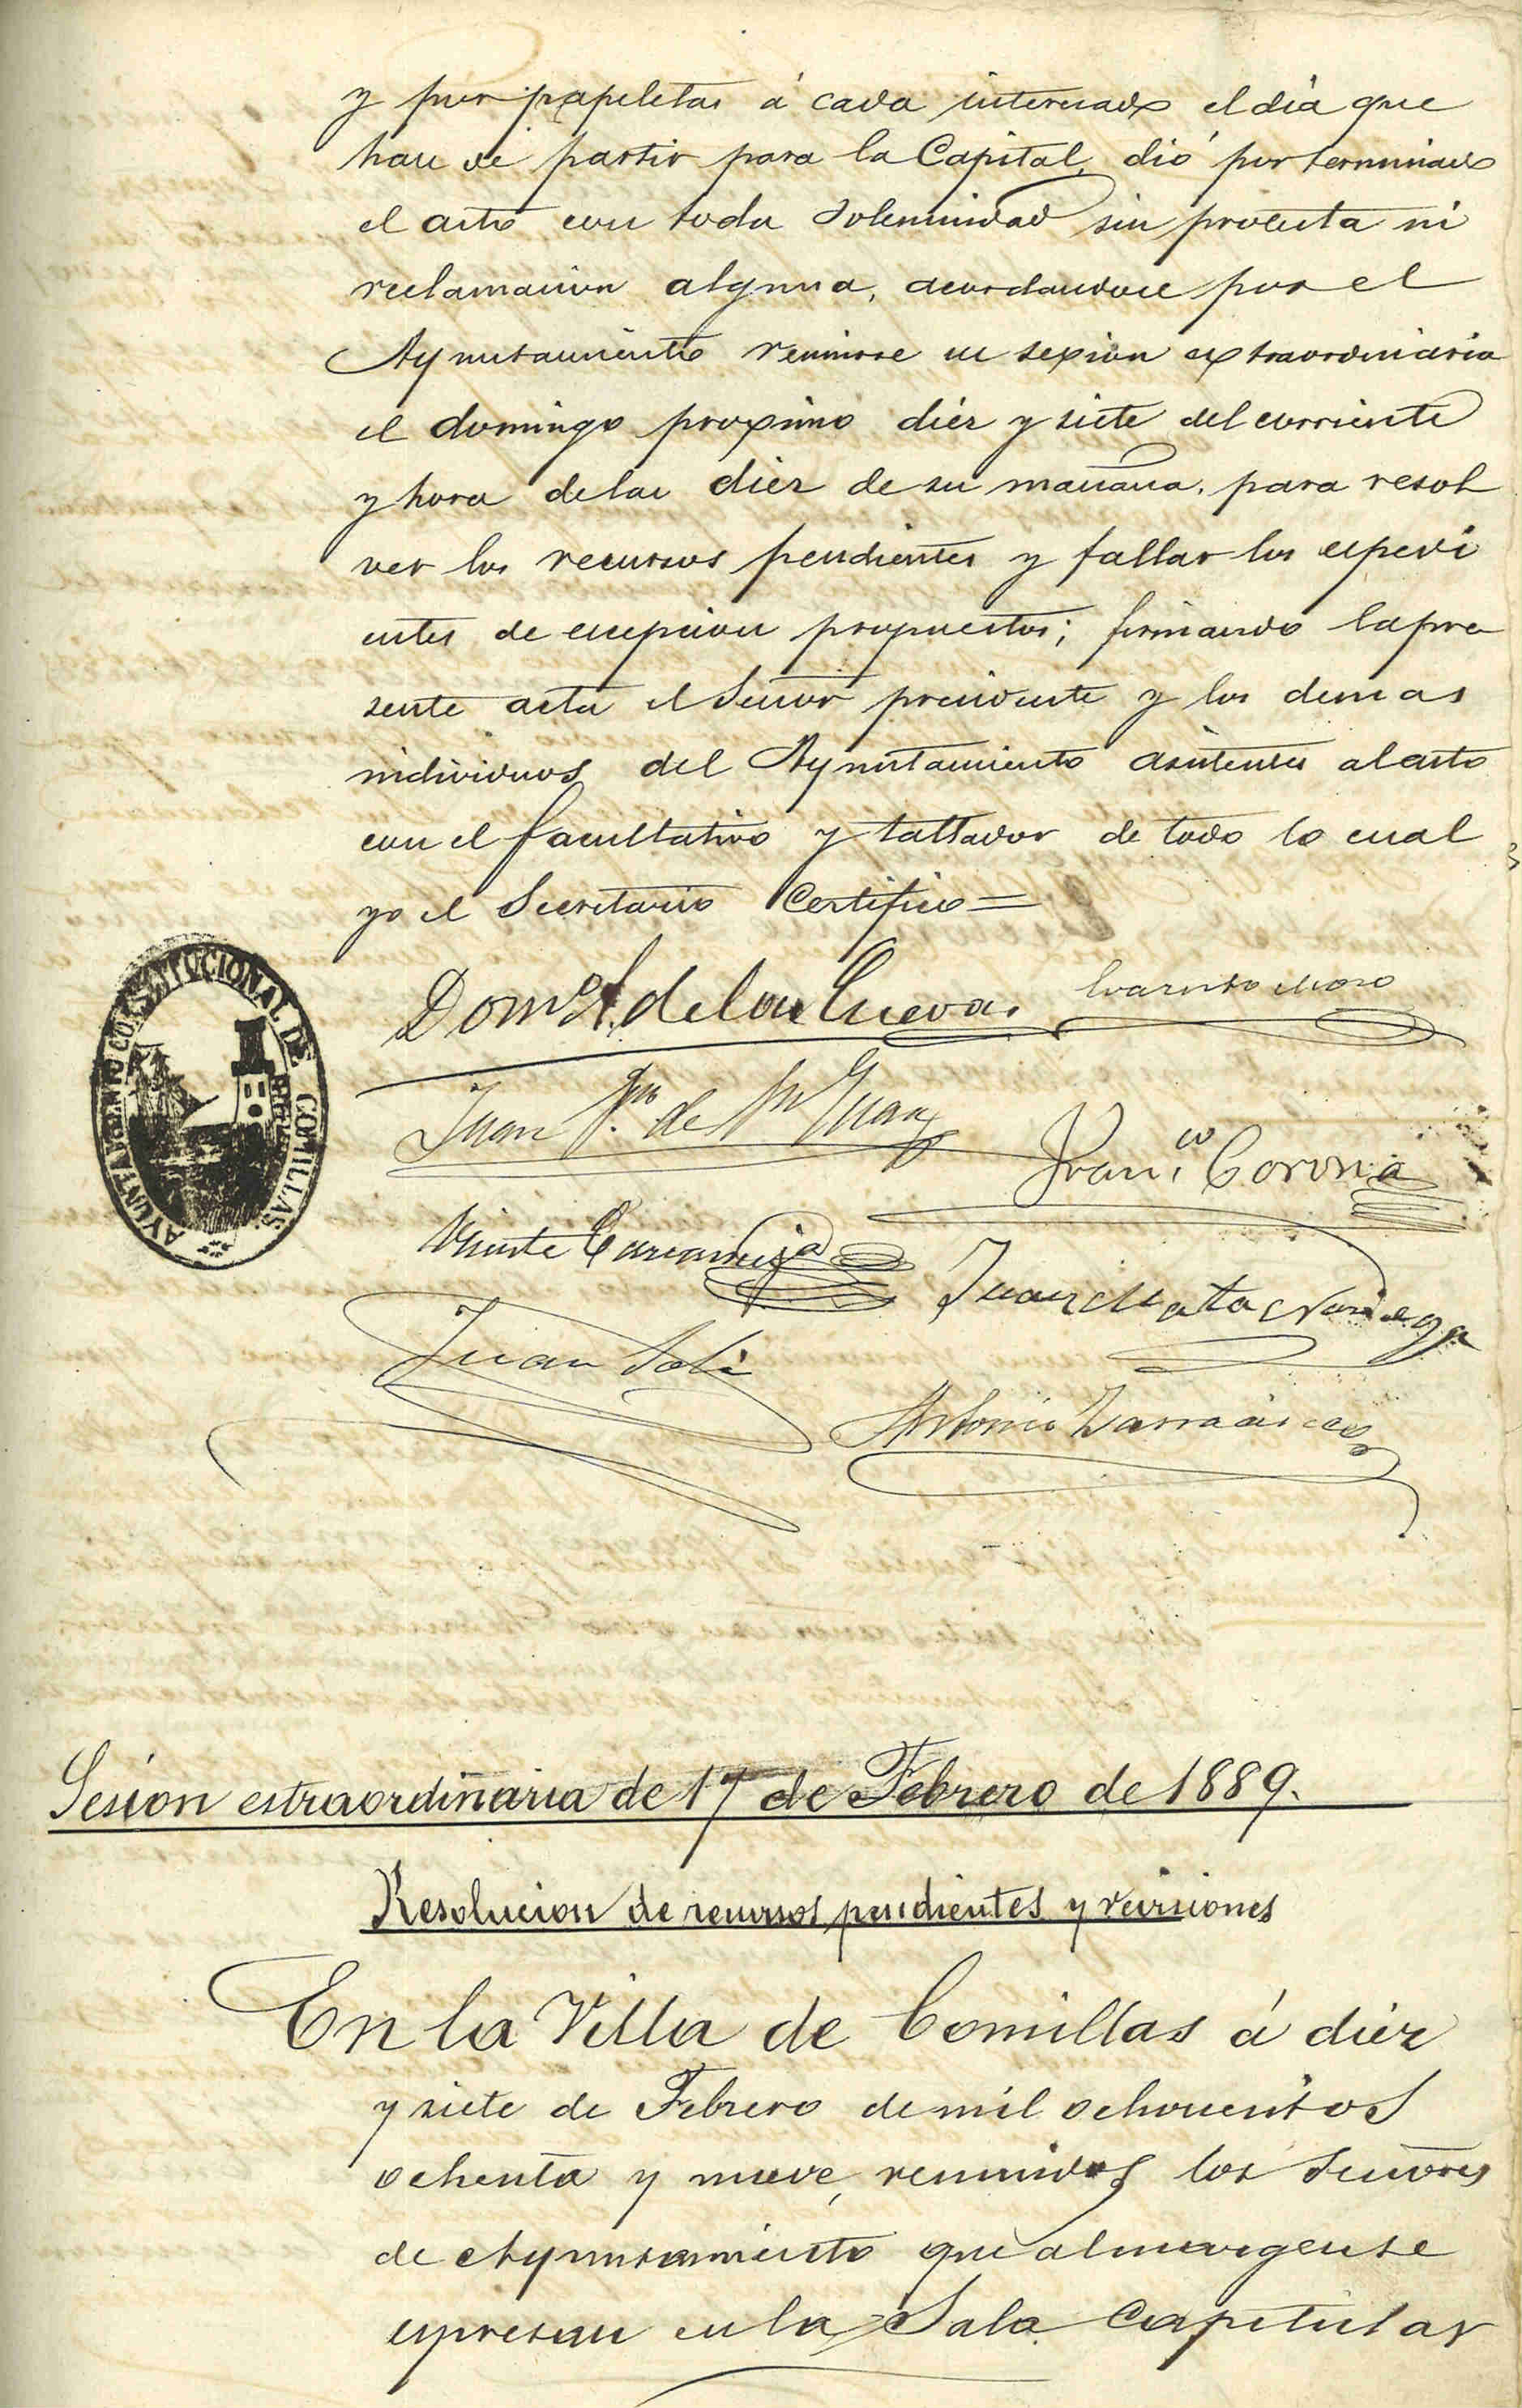 y por papeletas á cada interesado el dia que
han de partir para la Capital, dió por terminado
el acto con toda solemnidad sin protesta ni
reclamacion alguna, acordandose por el
Ayuntamiento reunirse en sexion extraordinaria
el domingo proximo diez y siete del corriente
y hora de las diez de su mañana, para resol
ver los recursos pendientes y fallar los espedi
entes de escepcion propuestos; firmando la pre
sente acta el Señor presidente y los demas
individuos del Ayuntamiento asistentes al acto
con el facultativo y tallador de todo lo cual
yo el Secretario Certifico=
Domº A. de las Cuevas
Evaristo Moro
AYUNTAMIENTO CONSTITUCIONAL DE COMILLAS
Juan Fn. de Sn Juan
Franco. Corona
Vicente
Juan Mata Noriega
Juan Solis
Antonio
Sesion estraordinaria de 17 de Febrero de 1889.
Resolucion de recursos pendientes y revisiones
En la Villa de Comillas á diez
y siete de Febrero de mil ochocientos
ochenta y nueve, reunidos los Señores
de Ayuntamiento que al margen se
espresan en la Sala Capitular